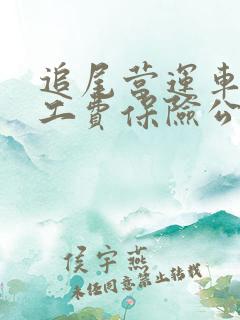 追尾营運車
工費保險公
侯宇燕
未经同意禁止转载